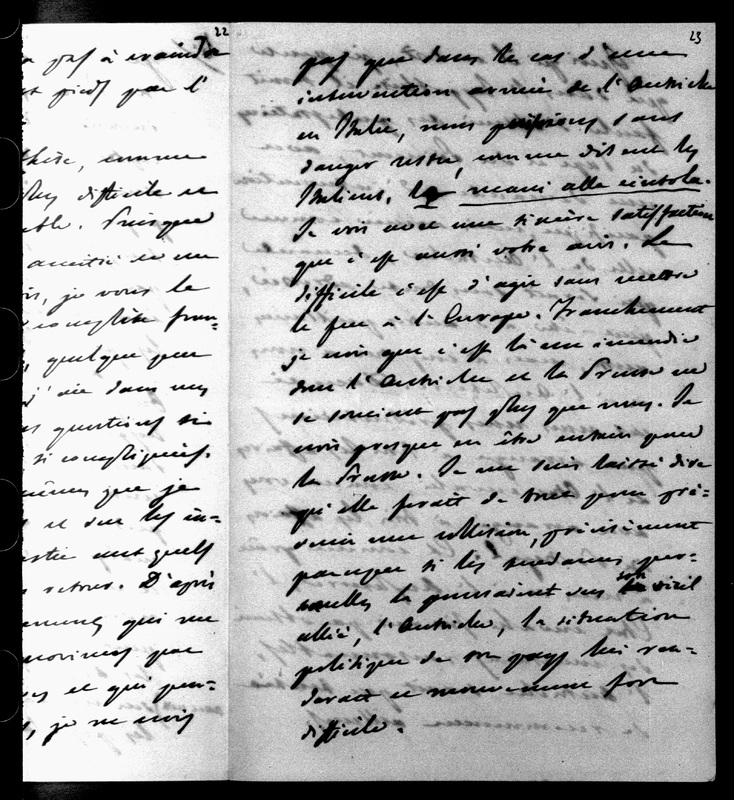 22
pas à craindre
pieds par l'
thèse, comme
plus difficile et
Puisque
amitié et un
je vous le
complète fran-
quelque peu
j'aie dans mes
questions si
si compliquées.
mêmes que je
et sur les in-
retour. D'après
qui me
par
et qui peu-
, je ne vois
23
pas que dans le cas d'une
intervention armée de l'Autriche
en Italie, nous puissions sans
danger rester, comme disent les
Italiens, le mani alla cintola.
Je vois avec une sincère satisfaction
que c'est aussi votre avis. Le
difficile c'est d'agir sans mettre
le feu à l'Europe. Franchement
je crois que c'est là un incendie
dont l'Autriche et la Prusse ne
se soucient pas plus que nous. Je
crois presque en être certain pour
la Prusse. Je me suis laissé dire
qu'elle ferait de tout pour pré-
venir une collision, précisément
parceque si les tendances per-
la poussaient vers son vieil
allié, l'Autriche, la situation
politique de son pays lui ren-
derait ce mouvement fort
difficile.